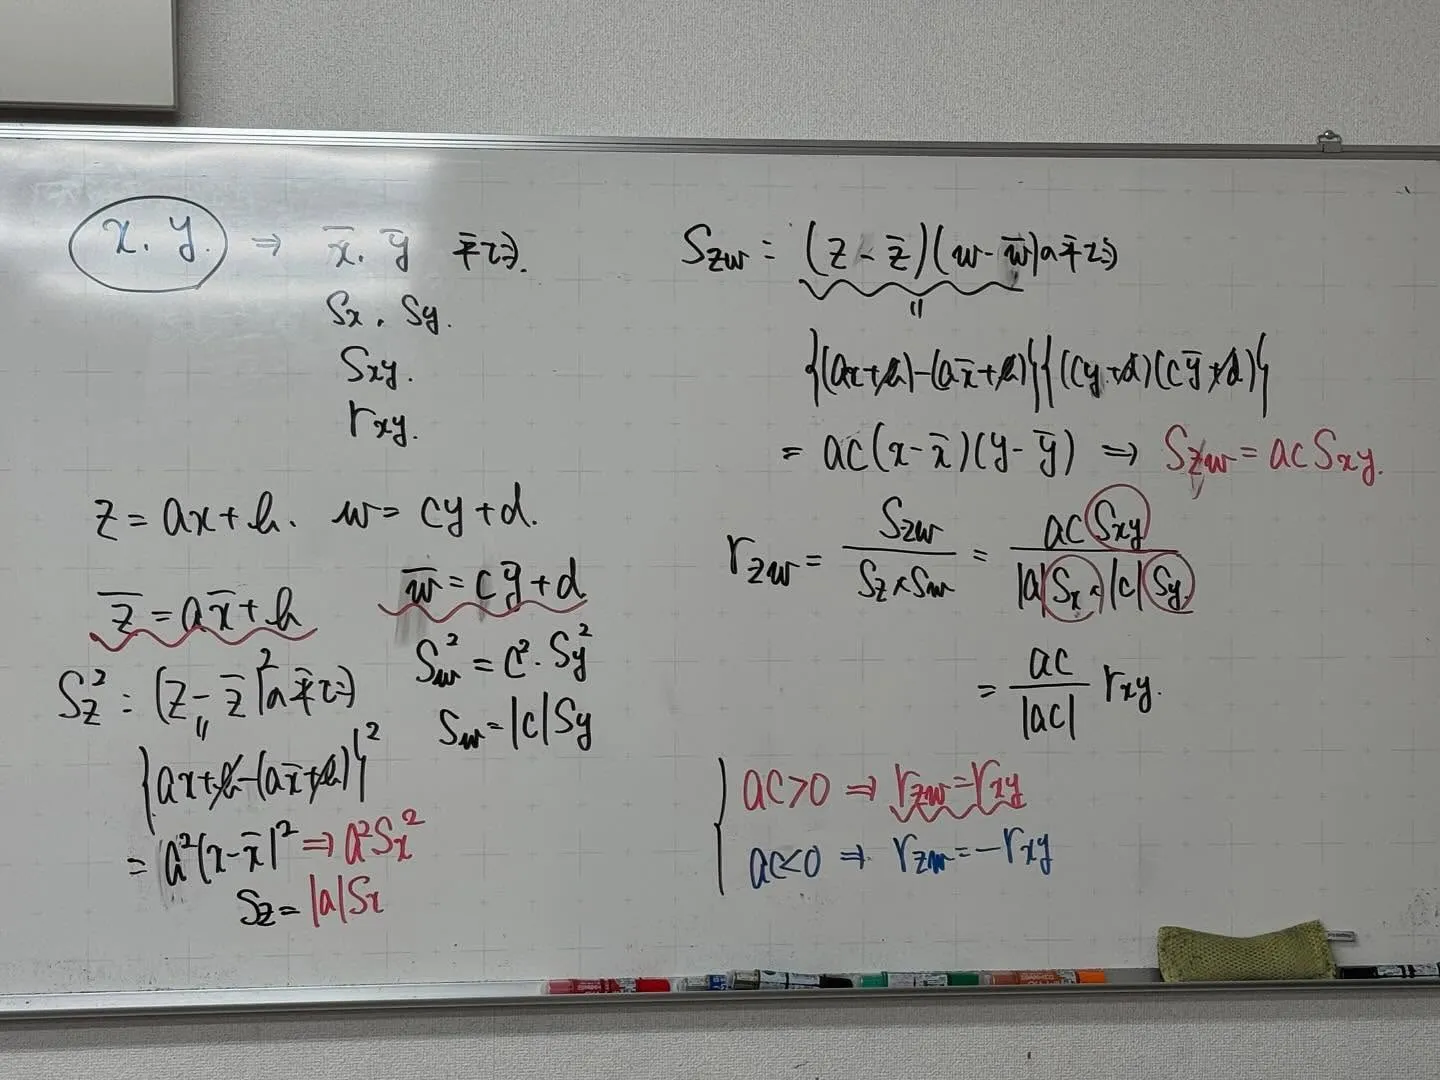 x. y. ⇒ x̄. ȳ 平均.
Sx. Sy.
Sxy.
rxy.
z = ax+b. w = cy+d.
z̄ = ax̄+b w̄ = cȳ+d
Sz² = (z-z̄)²の平均 Sw² = c²·Sy²
〃 Sw = |c|Sy
{ax+b-(ax̄+b)}²
= a²(x-x̄)² ⇒ a²Sx²
Sz = |a|Sx
Szw = (z-z̄)(w-w̄)の平均
〃
{(ax+b)-(ax̄+b)}{(cy+d)(cȳ+d)}
= ac(x-x̄)(y-ȳ) ⇒ Szw = acSxy.
rzw = Szw/(Sz×Sw) = acSxy/(|a|Sx×|c|Sy)
= ac/|ac| rxy.
ac>0 ⇒ rzw=rxy
ac<0 ⇒ rzw=-rxy